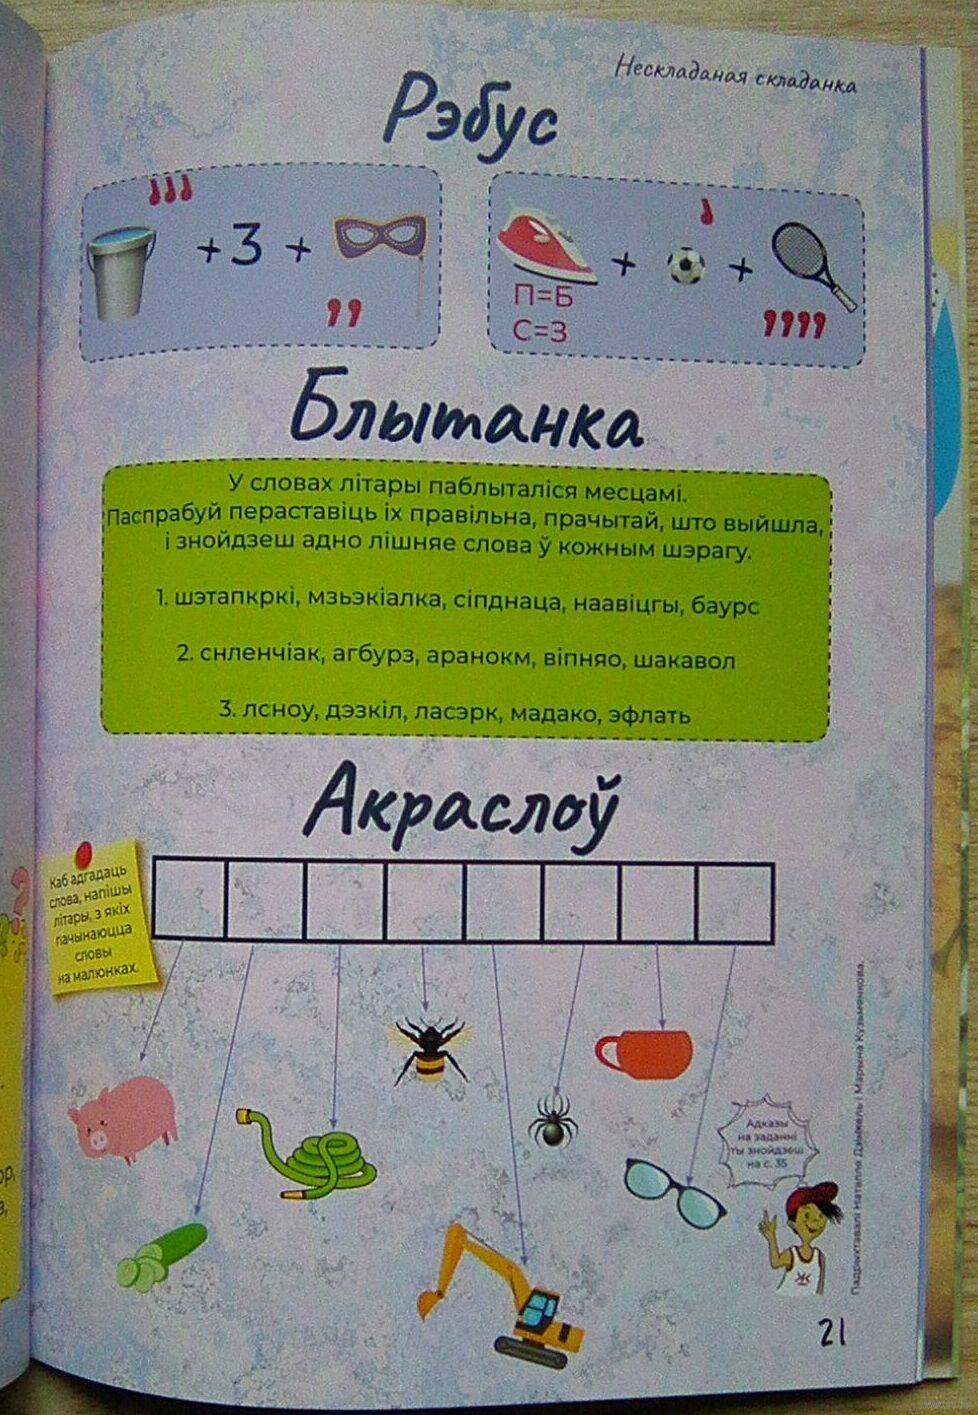 Нескладаная складанка
Рэбус
+3+
+ +
П=Б
С=З
Блытанка
У словах літары паблыталіся месцамі.
Паспрабуй пераставіць іх правільна, прачытай, што выйшла,
і знойдзеш адно лішняе слова ў кожным шэрагу.
1. шэтапкркі, мзьэкіалка, сіпднаца, наавіцгы, баурс
2. снленчіак, агбурз, аранокм, віпняо, шакавол
3. лсноу, дэзкіл, ласэрк, мадако, эфлать
Акраслоў
Каб адгадаць
слова, напішы
літары, з якіх
пачынаюцца
словы
на малюнках.
Адказы
на заданні
ты знойдзеш
на с. 35
Падрыхтавалі Наталля Дзімжэль і Марына Кузьмянкова.
21